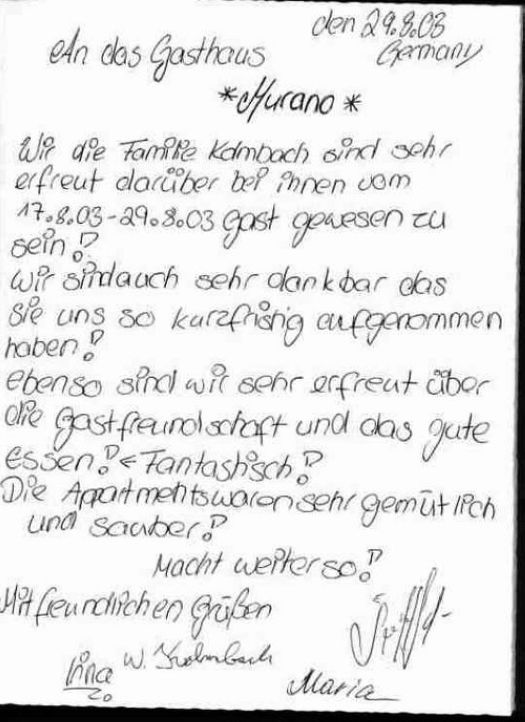 den 29.8.03
Germany
An das Gasthaus
*Murano*
Wir die Familie Kolmbach sind sehr
erfreut darüber bei ihnen vom
17.8.03-29.8.03 gast gewesen zu
sein!
wir sind auch sehr dankbar das
Sie uns so kurzfristig aufgenommen
haben!
ebenso sind wir sehr erfreut über
die gastfreundschaft und das gute
essen! < Fantastisch!
Die Appartments waren sehr gemütlich
und sauber!
Macht weiter so!
Mit freundlichen Grüßen
W. Kolmbach
Maria